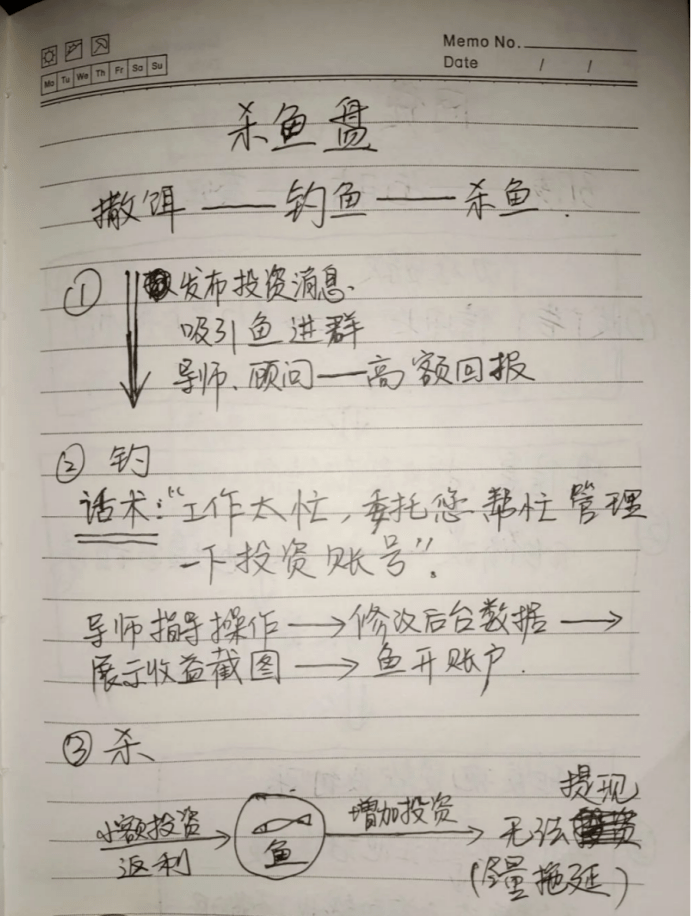 Memo No.
Mo Tu We Th Fr Sa Su
Date / /
杀鱼盘
撒饵——钓鱼——杀鱼.
① 发布投资消息.
吸引鱼进群
导师、顾问—高额回报
② 钓
话术:“工作太忙,委托您帮忙管理
一下投资账号”.
导师指导操作→修改后台数据→
展示收益截图→鱼开账户.
③ 杀
小额投资
返利
鱼
增加投资
提现
无法
(尽量拖延)